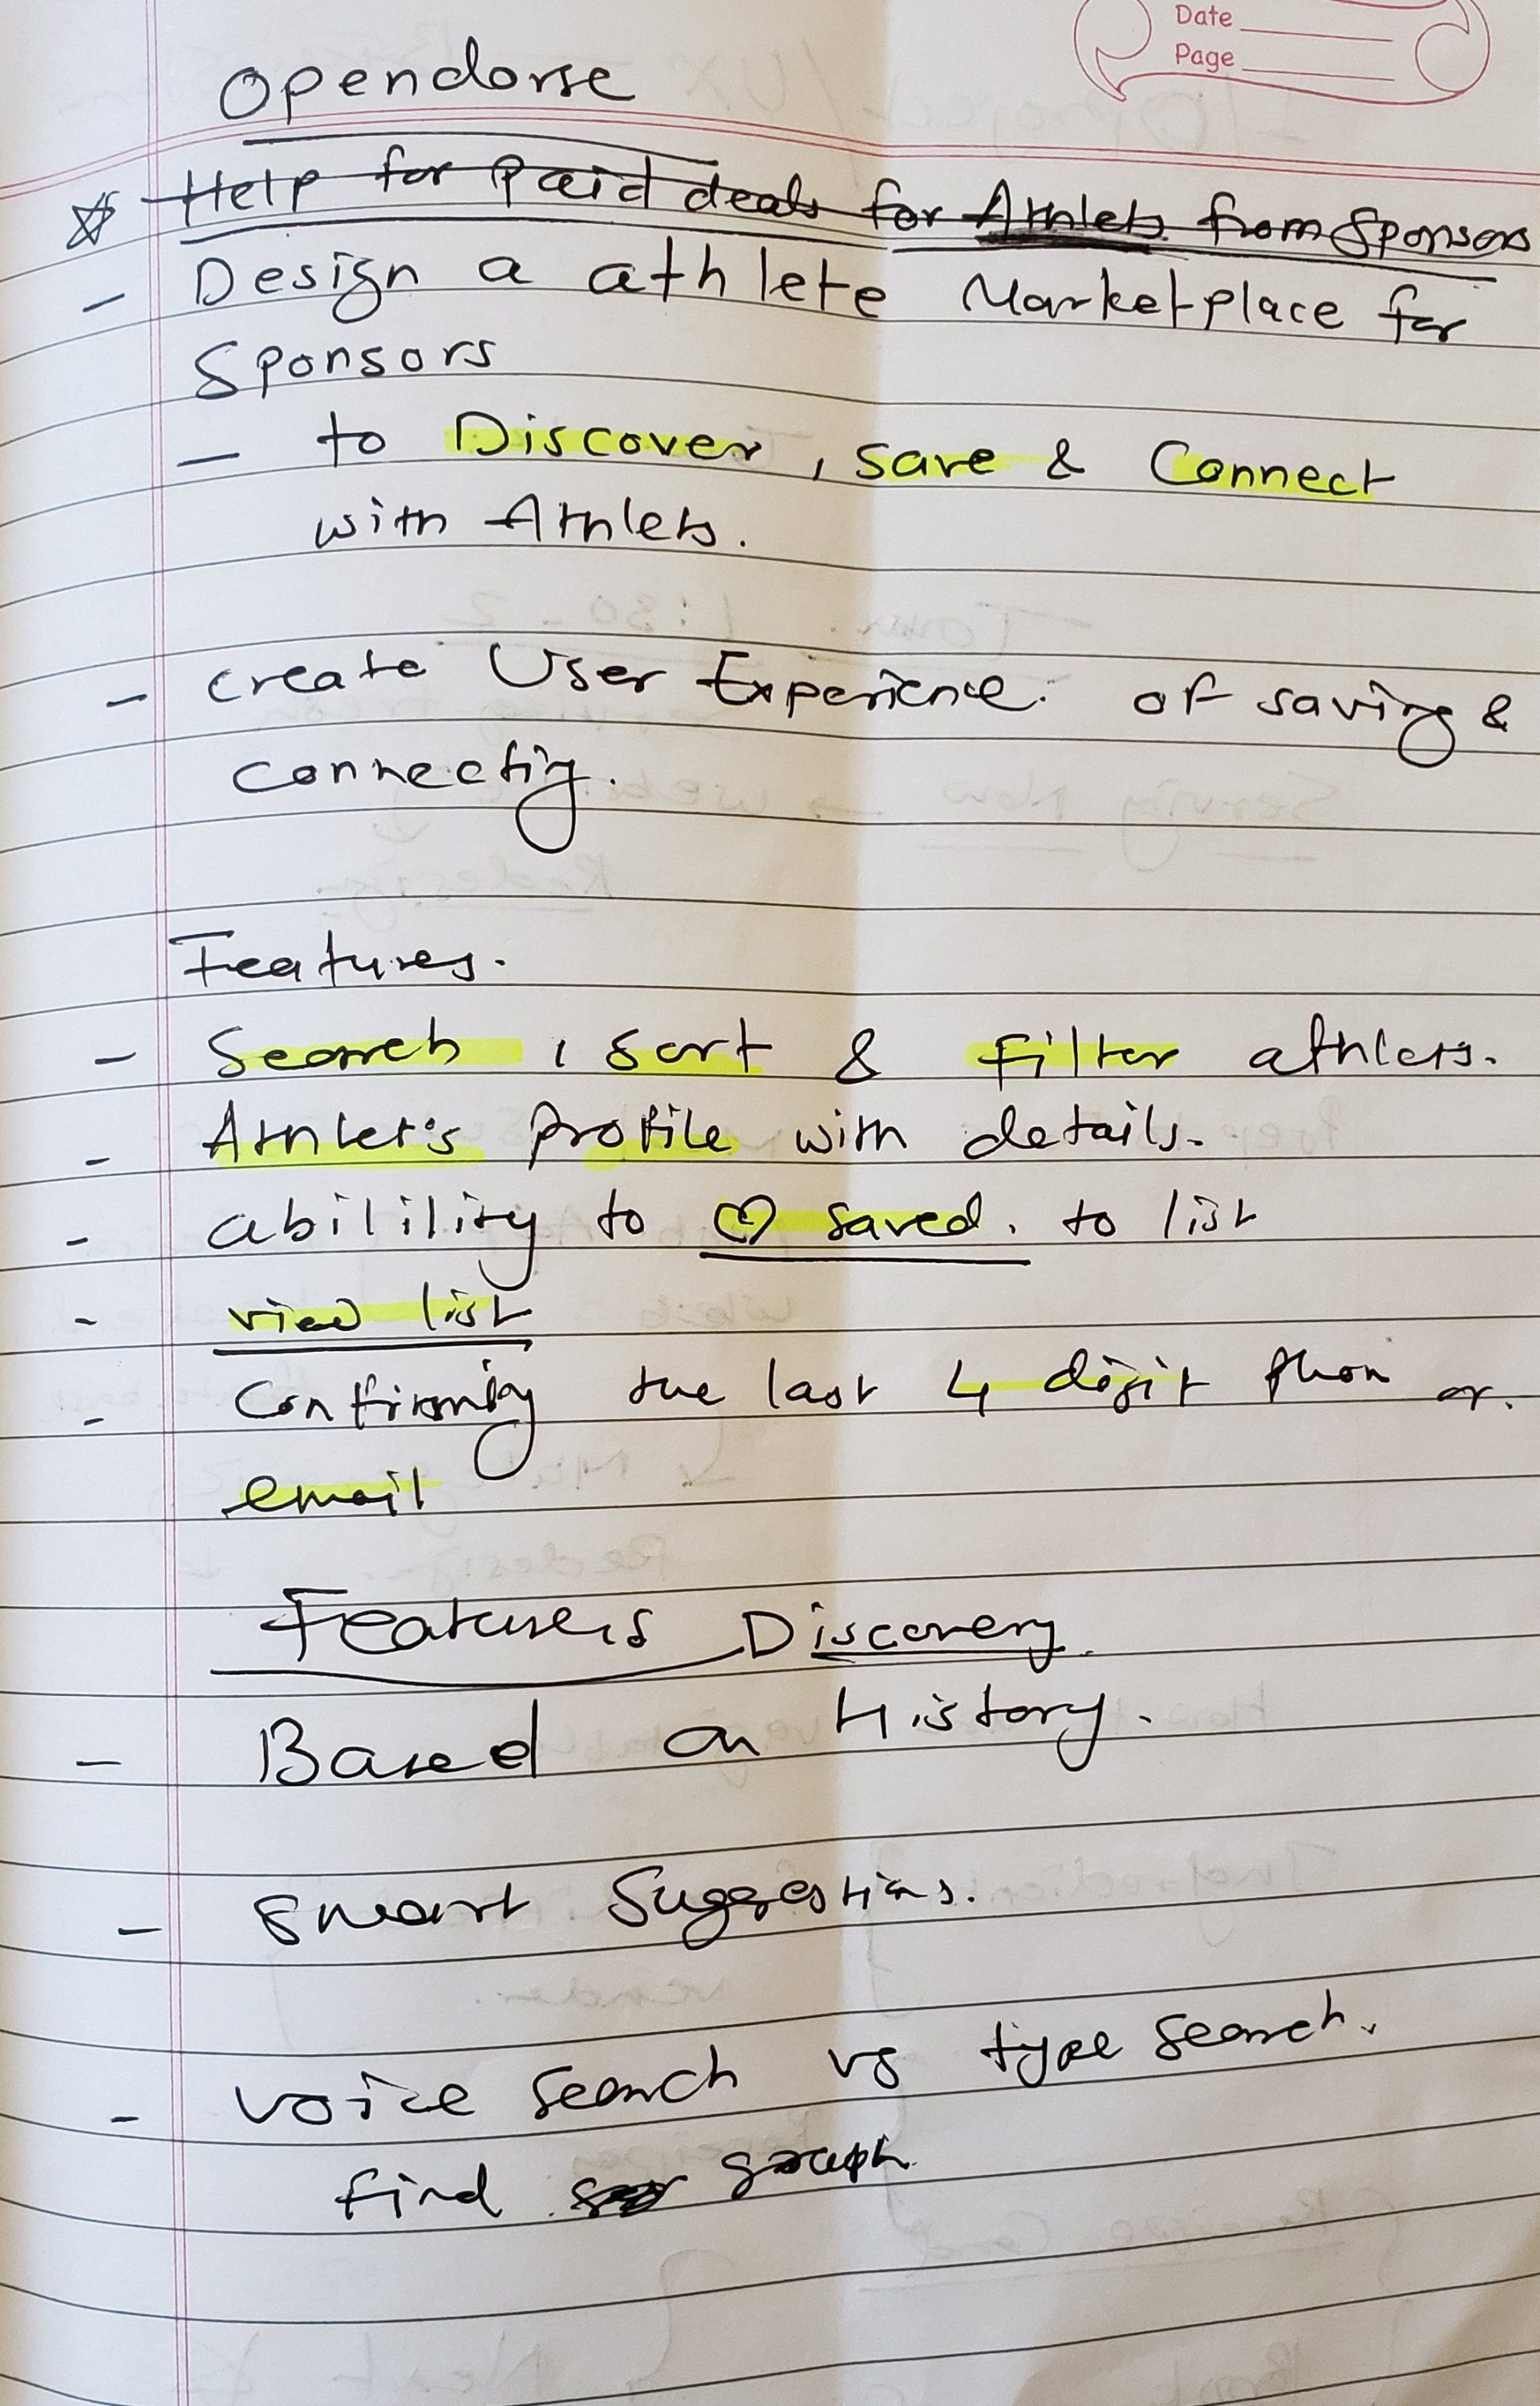 Date
Page
Opendorse
Help for Paid deals for Athlets from Sponsors
- Design a athlete Marketplace for
Sponsors
- to Discover, save & Connect
with Athlets.
- create User Experience. of saving &
connectig.
Features.
- Search, sort & filter athlets.
- Athlet's profile with details.
- abilility to ♡ saved. to list
- view list
- Confirming the last 4 digit phon or.
email
Features Discovery.
- Based on History.
- smart Suggestions.
- voice search vs type search.
find graph